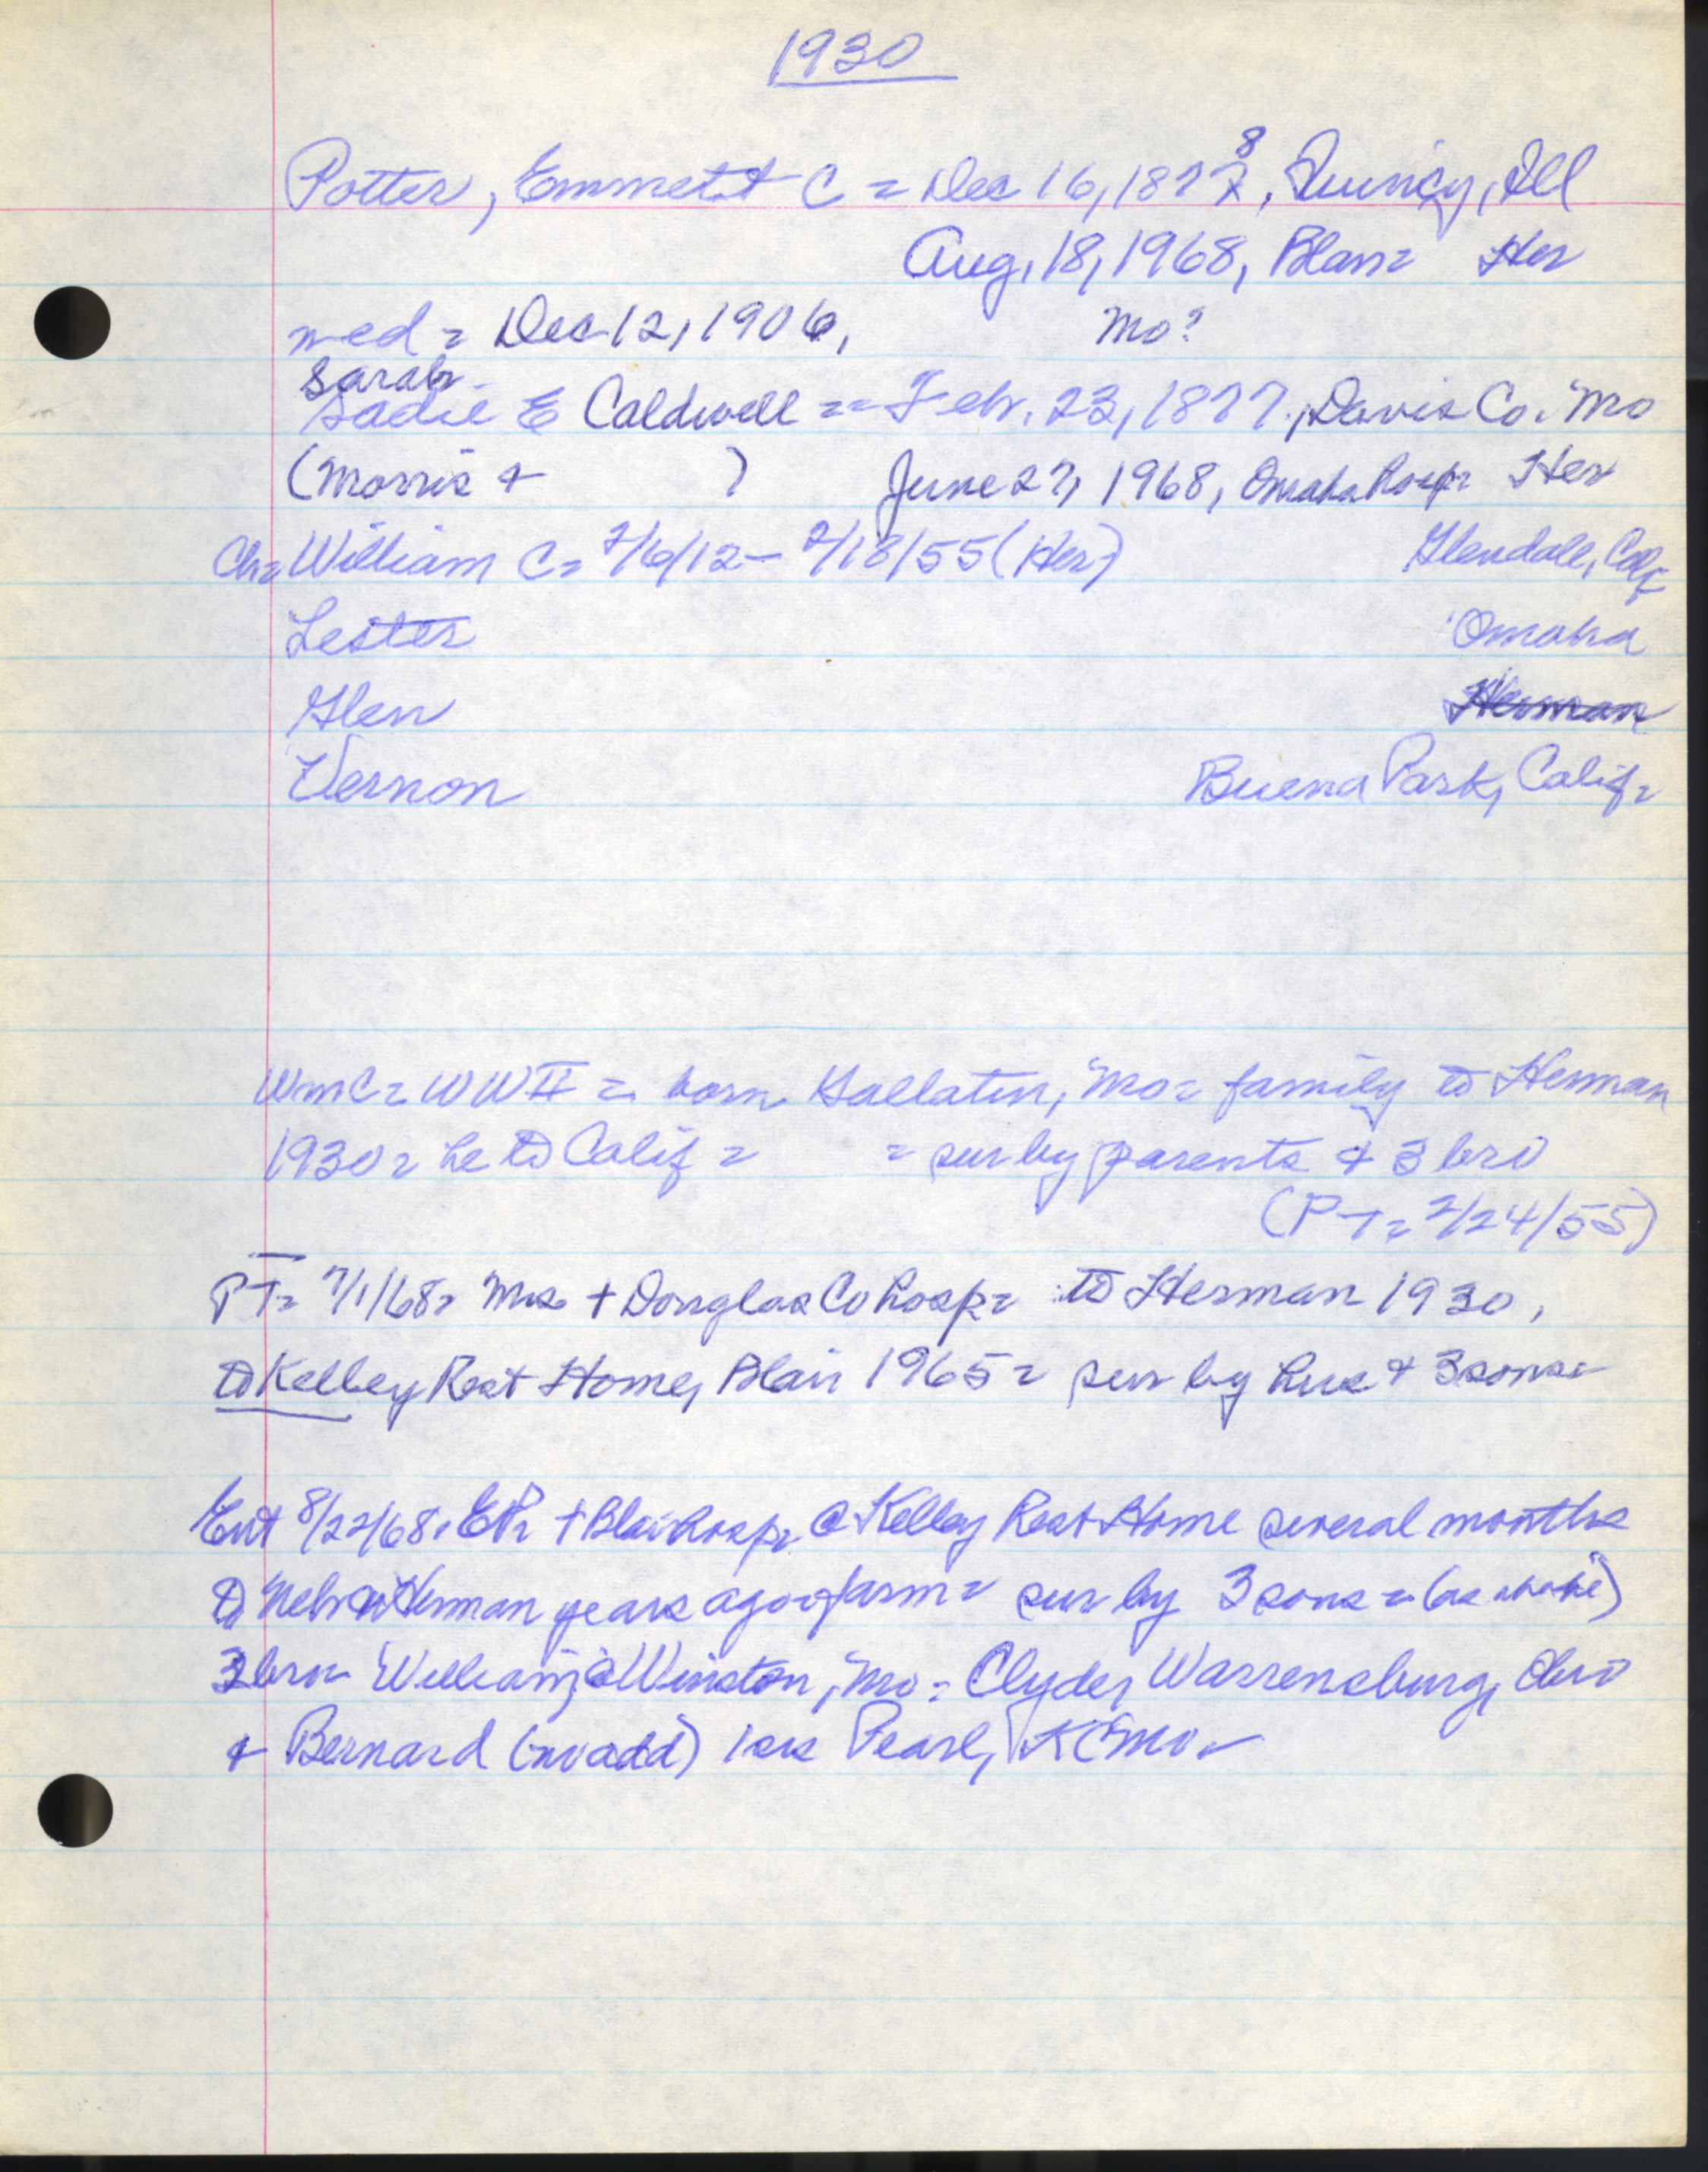 1930
Potter, Emmett C = Dec 16, 1877 8, Quincy, Ill
Aug, 18, 1968, Blair = Her
med = Dec 12, 1906, Mo?
Sarah
Sadie E Caldwell == Febr. 23, 1877, Davis Co. Mo
(Morris + ) June 27, 1968, Omaha Hosp = Her
Ch = William C = 2/6/12 - 2/18/55 (Her) Glendale, Calif
Lester Omaha
Glen Herman
Vernon Buena Park, Calif =
Wm C = WW II = born Gallatin, Mo = family to Herman
1930 = he to Calif = = sur by parents + 3 bro
(PT = 2/24/55)
PT = 7/1/68 = Mrs + Douglas Co Hosp = to Herman 1930,
to Kelley Rest Home, Blair 1965 = sur by hus + 3 sons =
Ent 8/22/68 = EP = + Blair Hosp = @ Kelley Rest Home several months
to Nebr Herman years ago = farm = sur by 3 sons = (as above)
3 bro = William, @ Winston, Mo = Clyde, Warrensburg, Ohio
+ Bernard (no add) 1 sis Pearl, KC Mo =